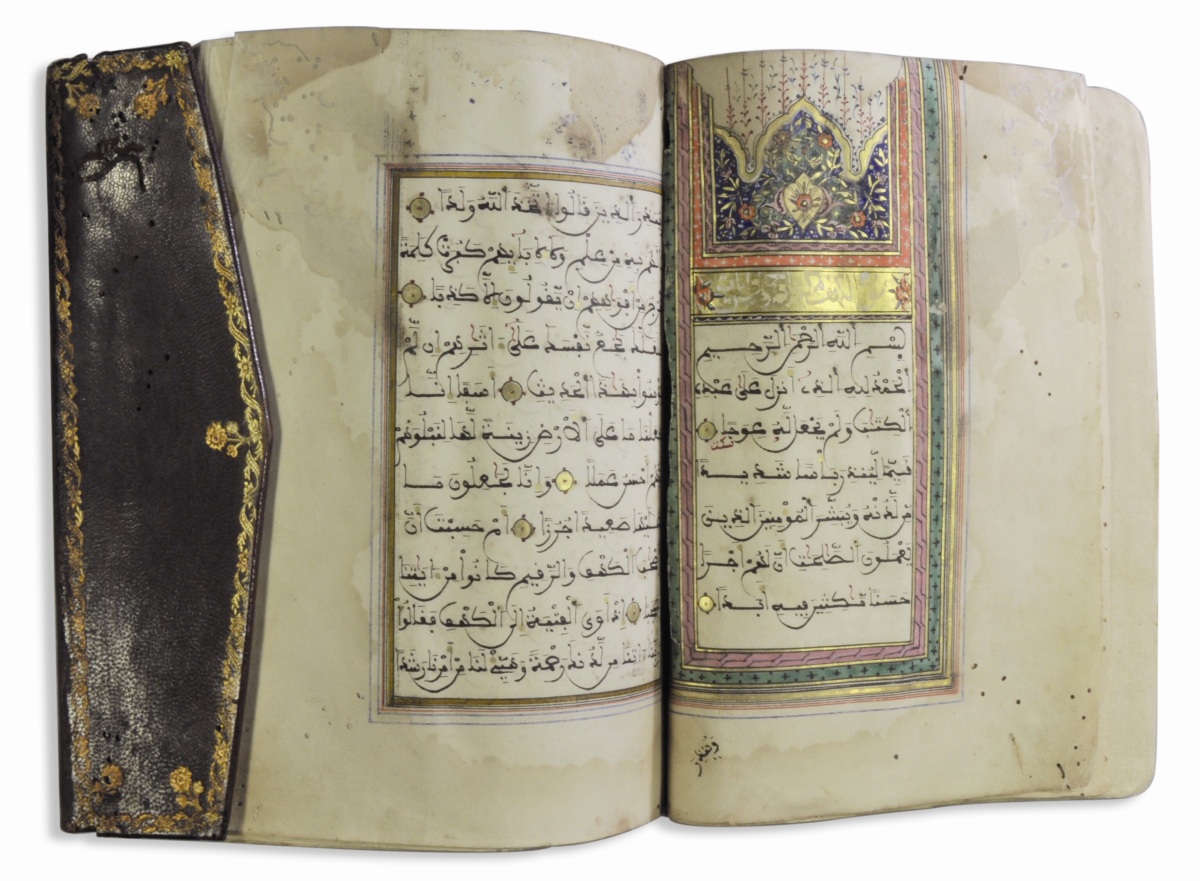 بِسْمِ اللهِ الرَّحْمٰنِ الرَّحِيمِ
الْحَمْدُ لِلهِ الَّذِي أَنزَلَ عَلَىٰ عَبْدِهِ
الْكِتَٰبَ وَلَمْ يَجْعَل لَّهُ عِوَجًا
قَيِّمًا لِّيُنذِرَ بَأْسًا شَدِيدًا
مِّن لَّدُنْهُ وَيُبَشِّرَ الْمُومِنِينَ الَّذِينَ
يَعْمَلُونَ الصَّٰلِحَٰتِ أَنَّ لَهُمْ أَجْرًا
حَسَنًا مَّٰكِثِينَ فِيهِ أَبَدًا
وينذر
وَيُنذِرَ الَّذِينَ قَالُوا اتَّخَذَ اللهُ وَلَدًا
لَهُم بِهِ مِنْ عِلْمٍ وَلَا لِأَبَائِهِمْ كَبُرَتْ كَلِمَةً
مِنْ أَفْوَٰهِهِمْ إِنْ يَّقُولُونَ إِلَّا كَذِبًا
فَلَعَلَّكَ بَٰخِعٌ نَّفْسَكَ عَلَىٰ ءَاثَٰرِهِمْ إِن لَّمْ
يُومِنُوا بِهَٰذَا الْحَدِيثِ أَسَفًا إِنَّا
جَعَلْنَا مَا عَلَى الْأَرْضِ زِينَةً لَّهَا لِنَبْلُوَهُمْ
أَيُّهُمْ أَحْسَنُ عَمَلًا وَإِنَّا لَجَٰعِلُونَ مَا
عَلَيْهَا صَعِيدًا جُرُزًا أَمْ حَسِبْتَ أَنَّ
أَصْحَٰبَ الْكَهْفِ وَالرَّقِيمِ كَانُوا مِنْ ءَايَٰتِنَا
عَجَبًا إِذْ أَوَى الْفِتْيَةُ إِلَى الْكَهْفِ فَقَالُوا
ءَاتِنَا مِن لَّدُنكَ رَحْمَةً وَهَيِّئْ لَنَا مِنْ أَمْرِنَا رَشَدًا